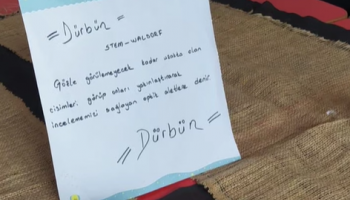 = Dürbün =
STEM-WALDORF
Gözle görülemeyecek kadar uzakta olan
cisimleri görüp onları yakınlaştırarak
incelememizi sağlayan optik aletlere denir.
= Dürbün =